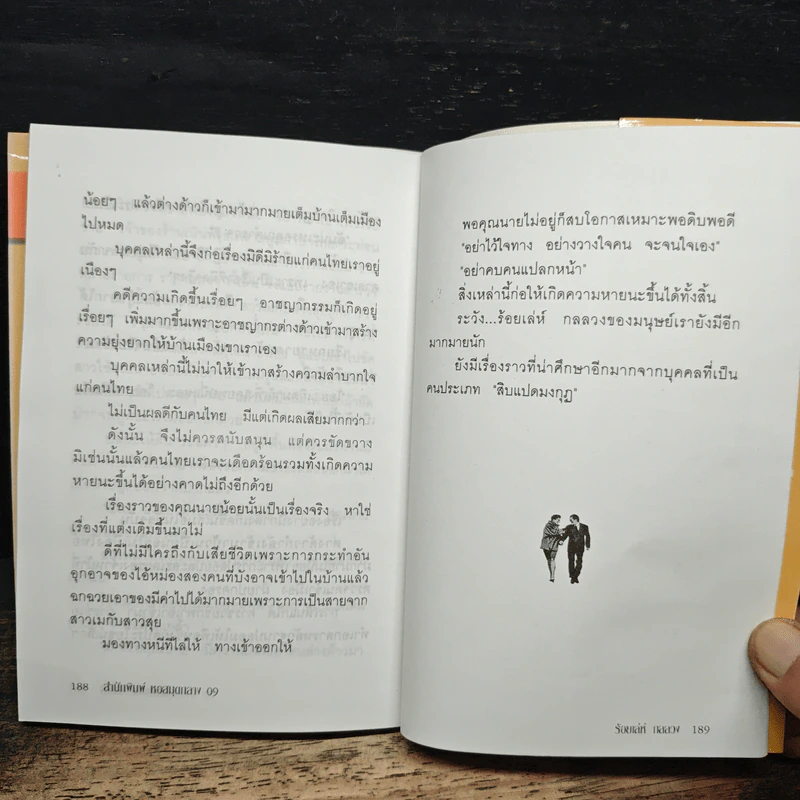 น้อยๆ แล้วต่างด้าวก็เข้ามามากมายเต็มบ้านเต็มเมือง
ไปหมด
บุคคลเหล่านี้จึงก่อเรื่องมิดีมิร้ายแก่คนไทยเราอยู่
เนืองๆ
คดีความเกิดขึ้นเรื่อยๆ อาชญากรรมก็เกิดอยู่
เรื่อยๆ เพิ่มมากขึ้นเพราะอาชญากรต่างด้าวเข้ามาสร้าง
ความยุ่งยากให้บ้านเมืองเขาเราเอง
บุคคลเหล่านี้ไม่น่าให้เข้ามาสร้างความลำบากใจ
แก่คนไทย
ไม่เป็นผลดีกับคนไทย มีแต่เกิดผลเสียมากกว่า
ดังนั้น จึงไม่ควรสนับสนุน แต่ควรขัดขวาง
มิเช่นนั้นแล้วคนไทยเราจะเดือดร้อนรวมทั้งเกิดความ
หายนะขึ้นได้อย่างคาดไม่ถึงอีกด้วย
เรื่องราวของคุณนายน้อยนั้นเป็นเรื่องจริง หาใช่
เรื่องที่แต่งเติมขึ้นมาไม่
ดีที่ไม่มีใครถึงกับเสียชีวิตเพราะการกระทำอัน
อุกอาจของไอ้หม่องสองคนที่บังอาจเข้าไปในบ้านแล้ว
ฉกฉวยเอาของมีค่าไปได้มากมายเพราะการเป็นสายจาก
สาวเมกับสาวสุย
มองทางหนีทีไล่ให้ ทางเข้าออกให้
188 สำนักพิมพ์ หอสมุดกลาง 09
พอคุณนายไม่อยู่ก็สบโอกาสเหมาะพอดิบพอดี
"อย่าไว้ใจทาง อย่างวางใจคน จะจนใจเอง"
"อย่าคบคนแปลกหน้า"
สิ่งเหล่านี้ก่อให้เกิดความหายนะขึ้นได้ทั้งสิ้น
ระวัง...ร้อยเล่ห์ กลลวงของมนุษย์เรายังมีอีก
มากมายนัก
ยังมีเรื่องราวที่น่าศึกษาอีกมากจากบุคคลที่เป็น
คนประเภท "สิบแปดมงกุฎ"
ร้อยเล่ห์ กลลวง 189